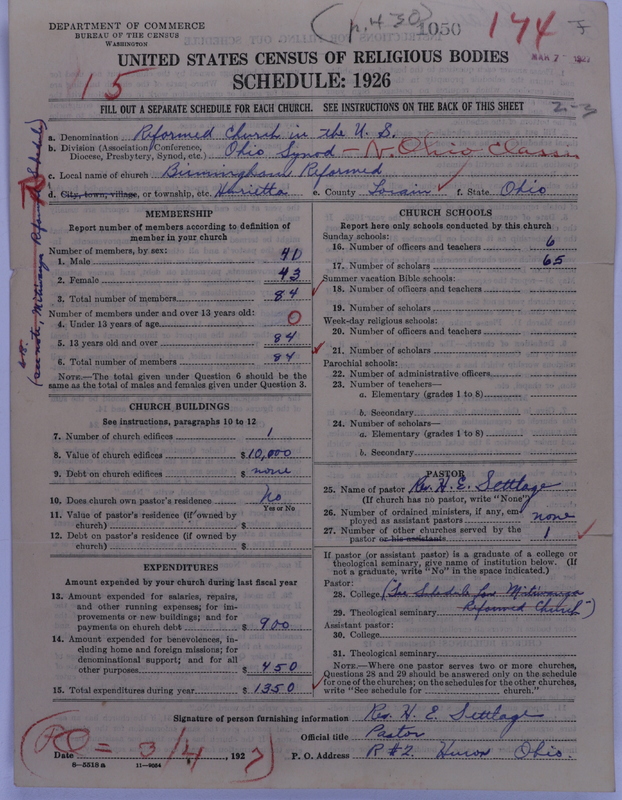 DEPARTMENT OF COMMERCE
BUREAU OF THE CENSUS
WASHINGTON
(p. 430)
1050
174
MAR 7 - 1927
UNITED STATES CENSUS OF RELIGIOUS BODIES
SCHEDULE: 1926
15
2-3
FILL OUT A SEPARATE SCHEDULE FOR EACH CHURCH. SEE INSTRUCTIONS ON THE BACK OF THIS SHEET
a. Denomination Reformed Church in the U. S.
b. Division (Association, Conference, Diocese, Presbytery, Synod, etc.) Ohio Synod — N. Ohio Classis
c. Local name of church Birmingham Reformed
d. City, town, village, or township, etc. Henrietta e. County Lorain f. State Ohio
MEMBERSHIP
Report number of members according to definition of
member in your church
Number of members, by sex:
1. Male 41
2. Female 43
3. Total number of members 84
Number of members under and over 13 years old:
4. Under 13 years of age 0
5. 13 years old and over 84
6. Total number of members 84
NOTE.—The total given under Question 6 should be
same as the total of males and females given under Question 3.
CHURCH BUILDINGS
See instructions, paragraphs 10 to 12
7. Number of church edifices 1
8. Value of church edifices $10,000
9. Debt on church edifices $ none
10. Does church own pastor's residence No
Yes or No
11. Value of pastor's residence (if owned by
church) $
12. Debt on pastor's residence (if owned by
church) $
EXPENDITURES
Amount expended by your church during last fiscal year
13. Amount expended for salaries, repairs,
and other running expenses; for im-
provements or new buildings; and for
payments on church debt $ 900
14. Amount expended for benevolences, in-
cluding home and foreign missions; for
denominational support; and for all
other purposes $ 450
15. Total expenditures during year $ 1350
CHURCH SCHOOLS
Report here only schools conducted by this church
Sunday schools:
16. Number of officers and teachers 6
17. Number of scholars 65
Summer vacation Bible schools:
18. Number of officers and teachers
19. Number of scholars
Week-day religious schools:
20. Number of officers and teachers
21. Number of scholars
Parochial schools:
22. Number of administrative officers
23. Number of teachers—
a. Elementary (grades 1 to 8)
b. Secondary
24. Number of scholars—
a. Elementary (grades 1 to 8)
b. Secondary
PASTOR
25. Name of pastor Rev. H. E. Settlage
(If church has no pastor, write "None")
26. Number of ordained ministers, if any, em-
ployed as assistant pastors none
27. Number of other churches served by the
pastor or his assistants 1
If pastor (or assistant pastor) is a graduate of a college or
theological seminary, give name of institution below. (If
not a graduate, write "No" in the space indicated.)
Pastor:
28. College (See Schedule for Mitiwanga
29. Theological seminary Reformed Church)
Assistant pastor:
30. College
31. Theological seminary
NOTE.—Where one pastor serves two or more churches,
Questions 28 and 29 should be answered only on the schedule
for one of the churches; on the schedules for the other churches,
write "See schedule for church."
Signature of person furnishing information Rev. H. E. Settlage
Official title Pastor
Date 192 P. O. Address R #2. Huron Ohio.
PO = 3/4 7
8—5518 a 11—9004